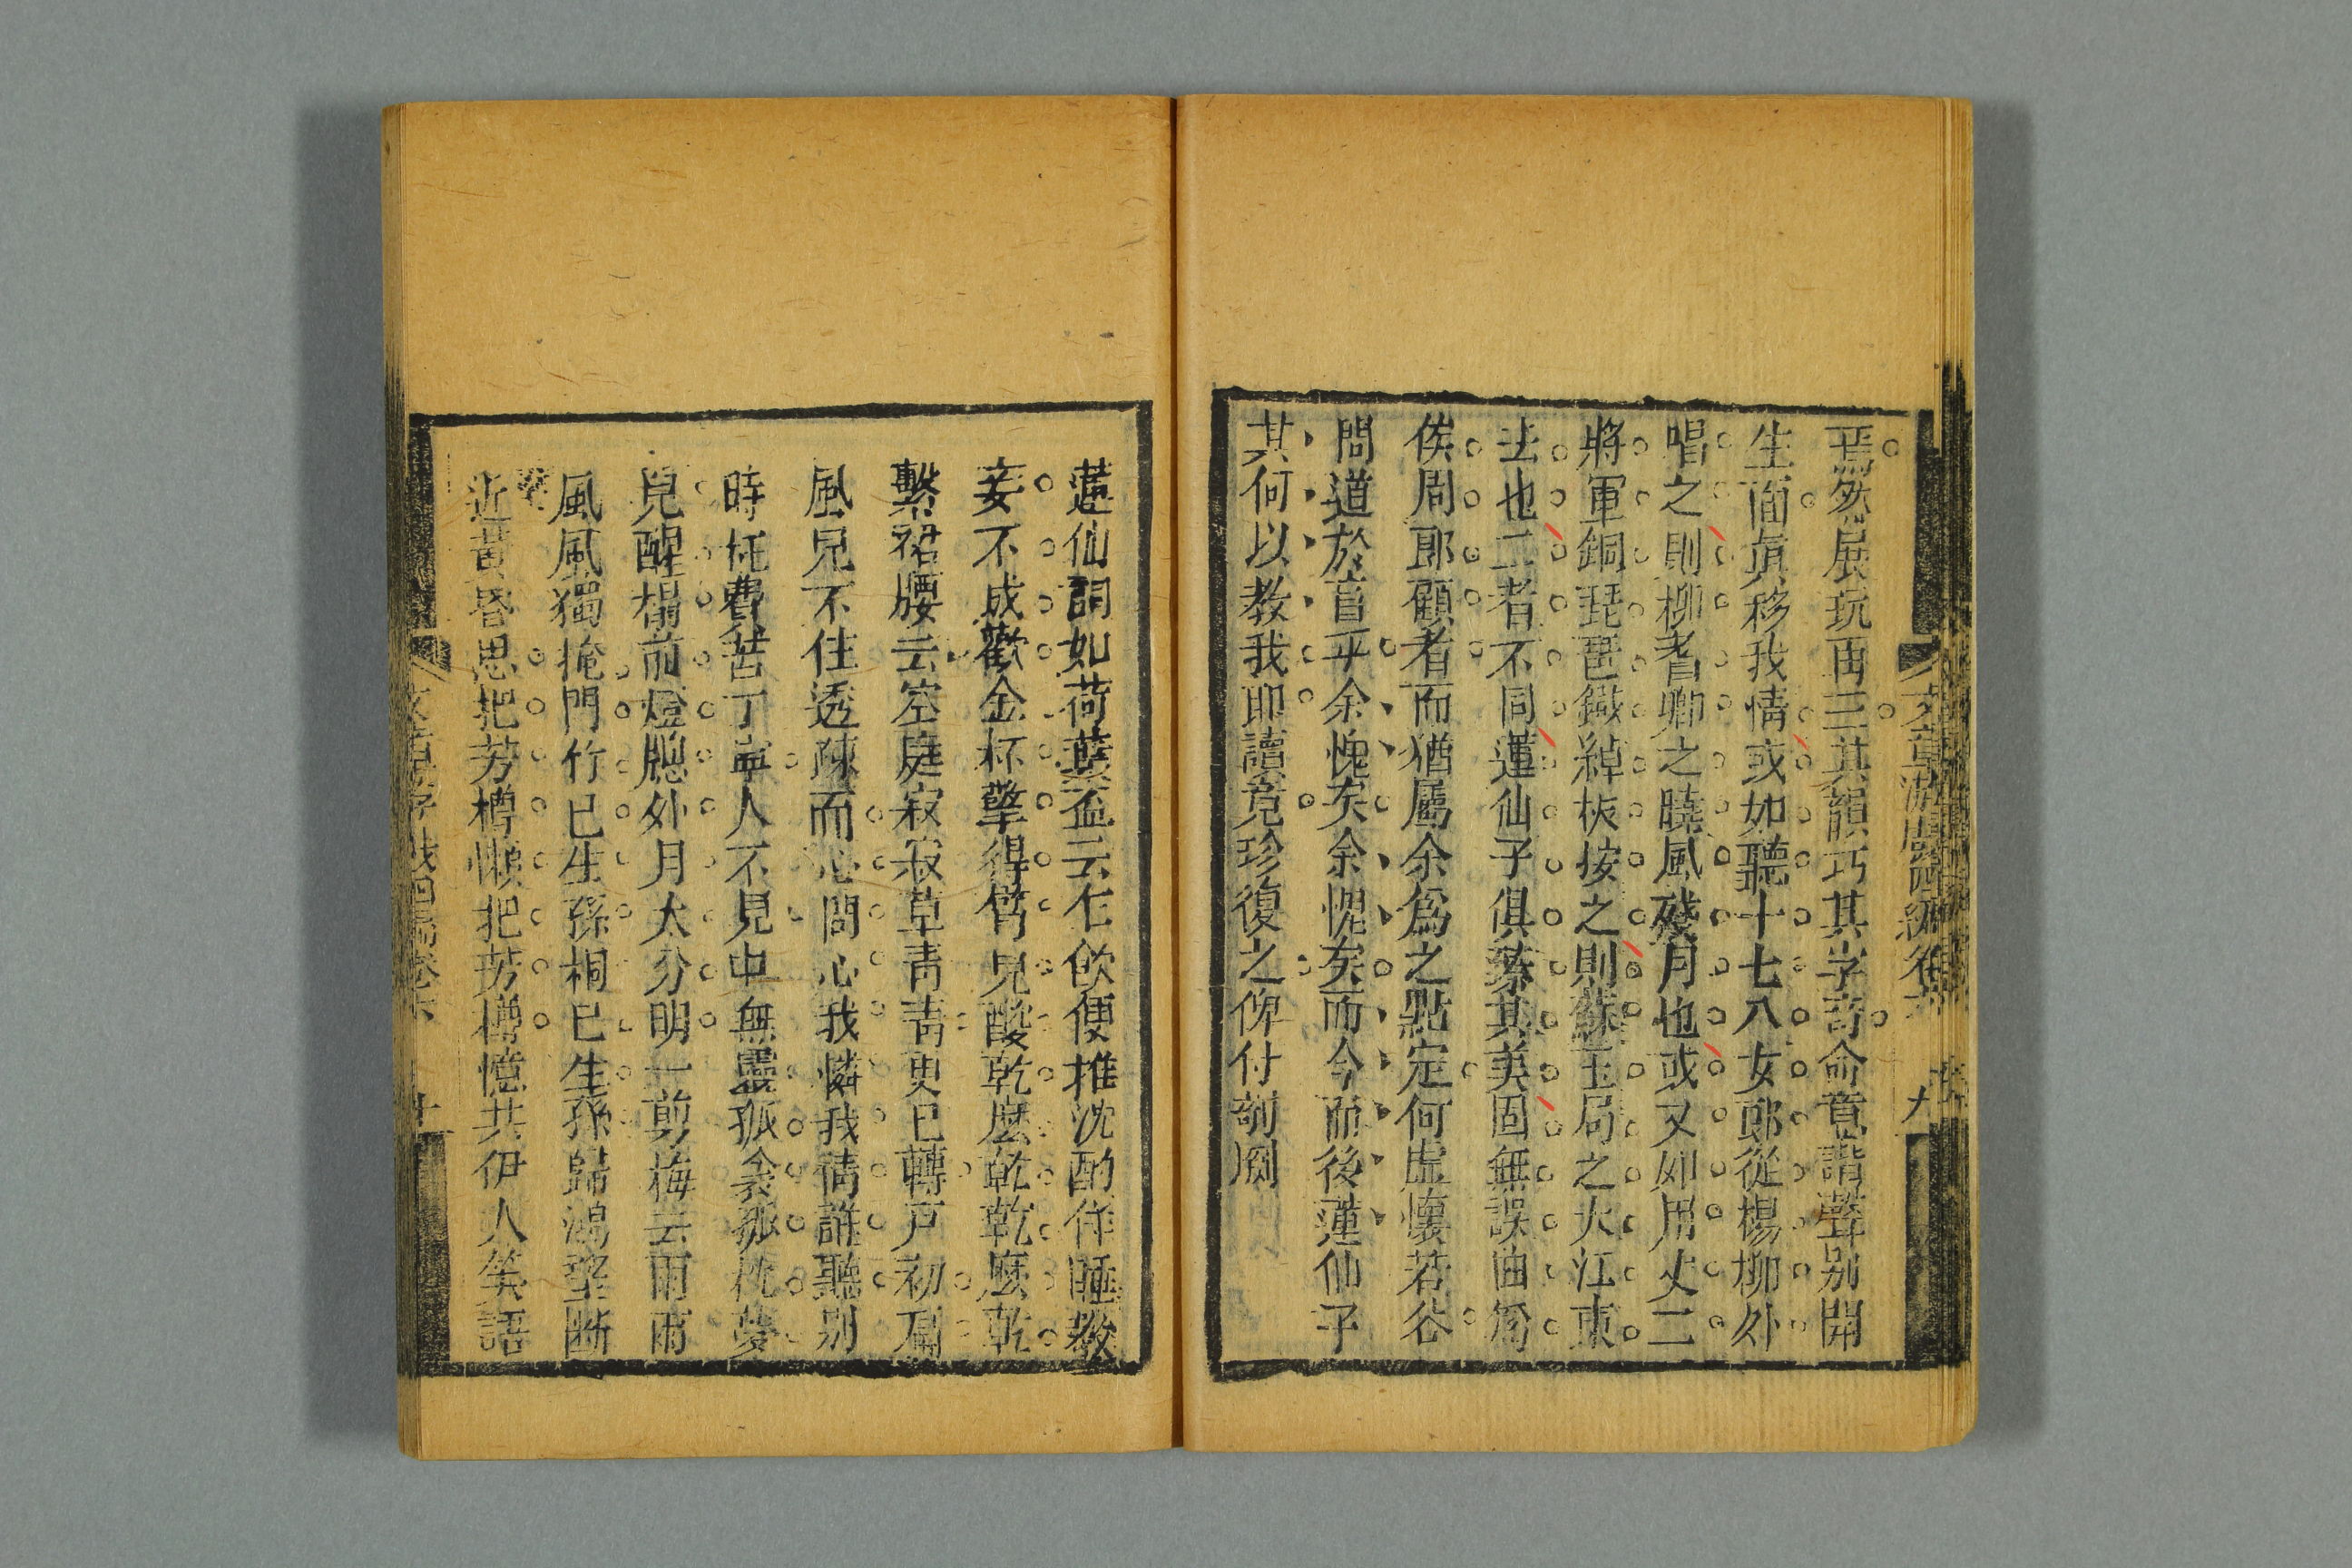 焉然展玩再三其韻巧其字奇命意諧聲别開
生面眞移我情或如聽十七八女郎從楊柳外
唱之則柳耆卿之曉風殘月也或又如用丈二
將軍銅琵琶鐵綽板按之則蘇玉局之大江東
去也二者不同蓮仙子俱臻其美固無誤曲爲
侯周郎顧者而猶屬余爲之點定何虛懷若谷
問道於盲乎余愧矣余愧矣而今而後蓮仙子
其何以教我耶讀竟珍復之俾付剞劂
蓮仙詞如荷葉盃云乍飲便推沈酌佯睡教
妾不成歡金杯擎得臂兒酸乾麽乾乾麽乾
繫裙腰云空庭寂寂草青青更已轉戸初扃
風兒不住透踈而心問心我憐我情誰聽别
時枉費苦丁寧人不見中無靈孤衾孤枕夢
兒醒榻前燈牕外月太分明一剪梅云雨雨
風風獨掩門竹已生孫桐已生孫歸鴻望斷
近黃昏思把芳樽懶把芳樽憶共伊人笑語